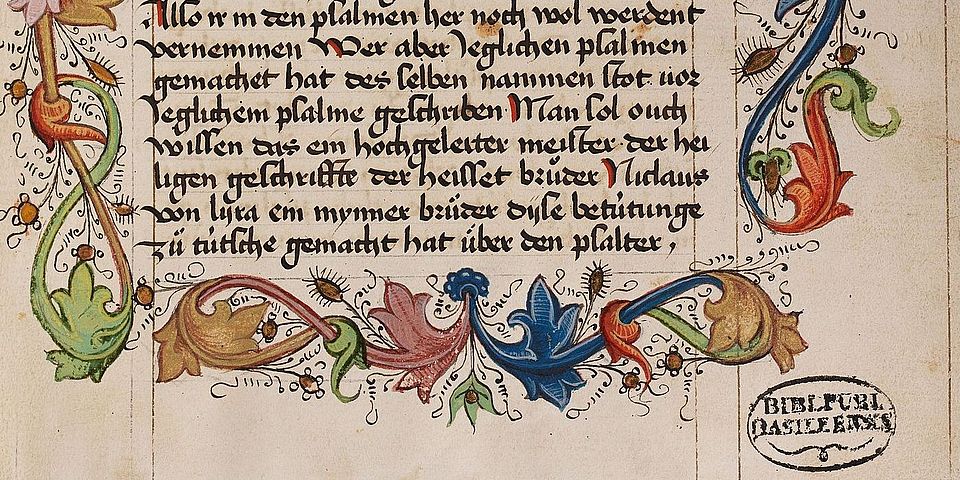 Allso ir in den psalmen her noch wol werdent
vernemmen Wer aber Jeglichen psalmen
gemachet hat des selben nammen stot vor
Jeglichem psalme geschriben Man sol ouch
wissen das ein hochgelerter meister der hei
ligen geschriffte der heisset brůder Niclaus
von lyra ein mynner brůder dyse betútunge
zů tútsche gemacht hat über den psalter,
BIBL.PUBL
BASILEENSIS